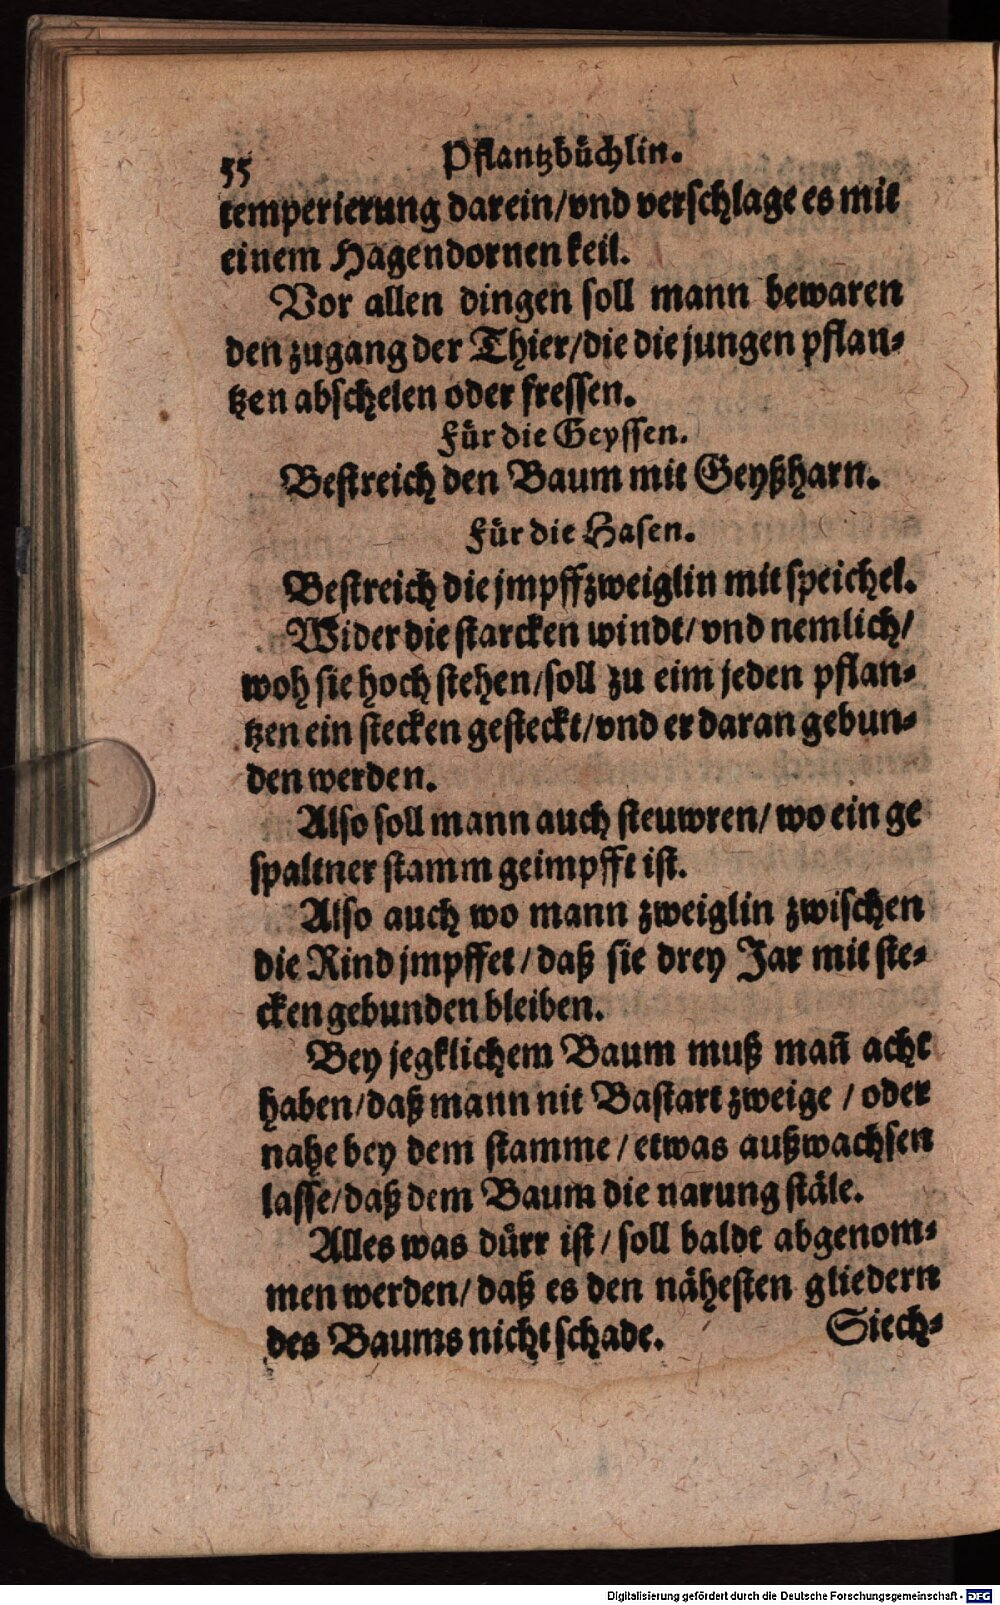 55 Pflantzbüchlin.
temperierung darein/vnd verschlage es mit
einem Hagendornen keil.
Vor allen dingen soll mann bewaren
den zugang der Thier/die die jungen pflan-
tzen abschelen oder fressen.
Für die Geyssen.
Bestreich den Baum mit Geyßharn.
Für die Hasen.
Bestreich die jmpffzweiglin mit speichel.
Wider die starcken windt/vnd nemlich/
woh sie hoch stehen/soll zu eim jeden pflan-
tzen ein stecken gesteckt/vnd er daran gebun-
den werden.
Also soll mann auch steuwren/wo ein ge
spaltner stamm geimpfft ist.
Also auch wo mann zweiglin zwischen
die Rind jmpffet/daß sie drey Jar mit ste-
cken gebunden bleiben.
Bey jegklichem Baum muß mañ acht
haben/daß mann nit Bastart zweige/oder
nahe bey dem stamme/etwas außwachsen
lasse/daß dem Baum die narung stäle.
Alles was dürr ist/soll baldt abgenom-
men werden/daß es den nähesten gliedern
des Baums nicht schade. Siech-
Digitalisierung gefördert durch die Deutsche Forschungsgemeinschaft - DFG